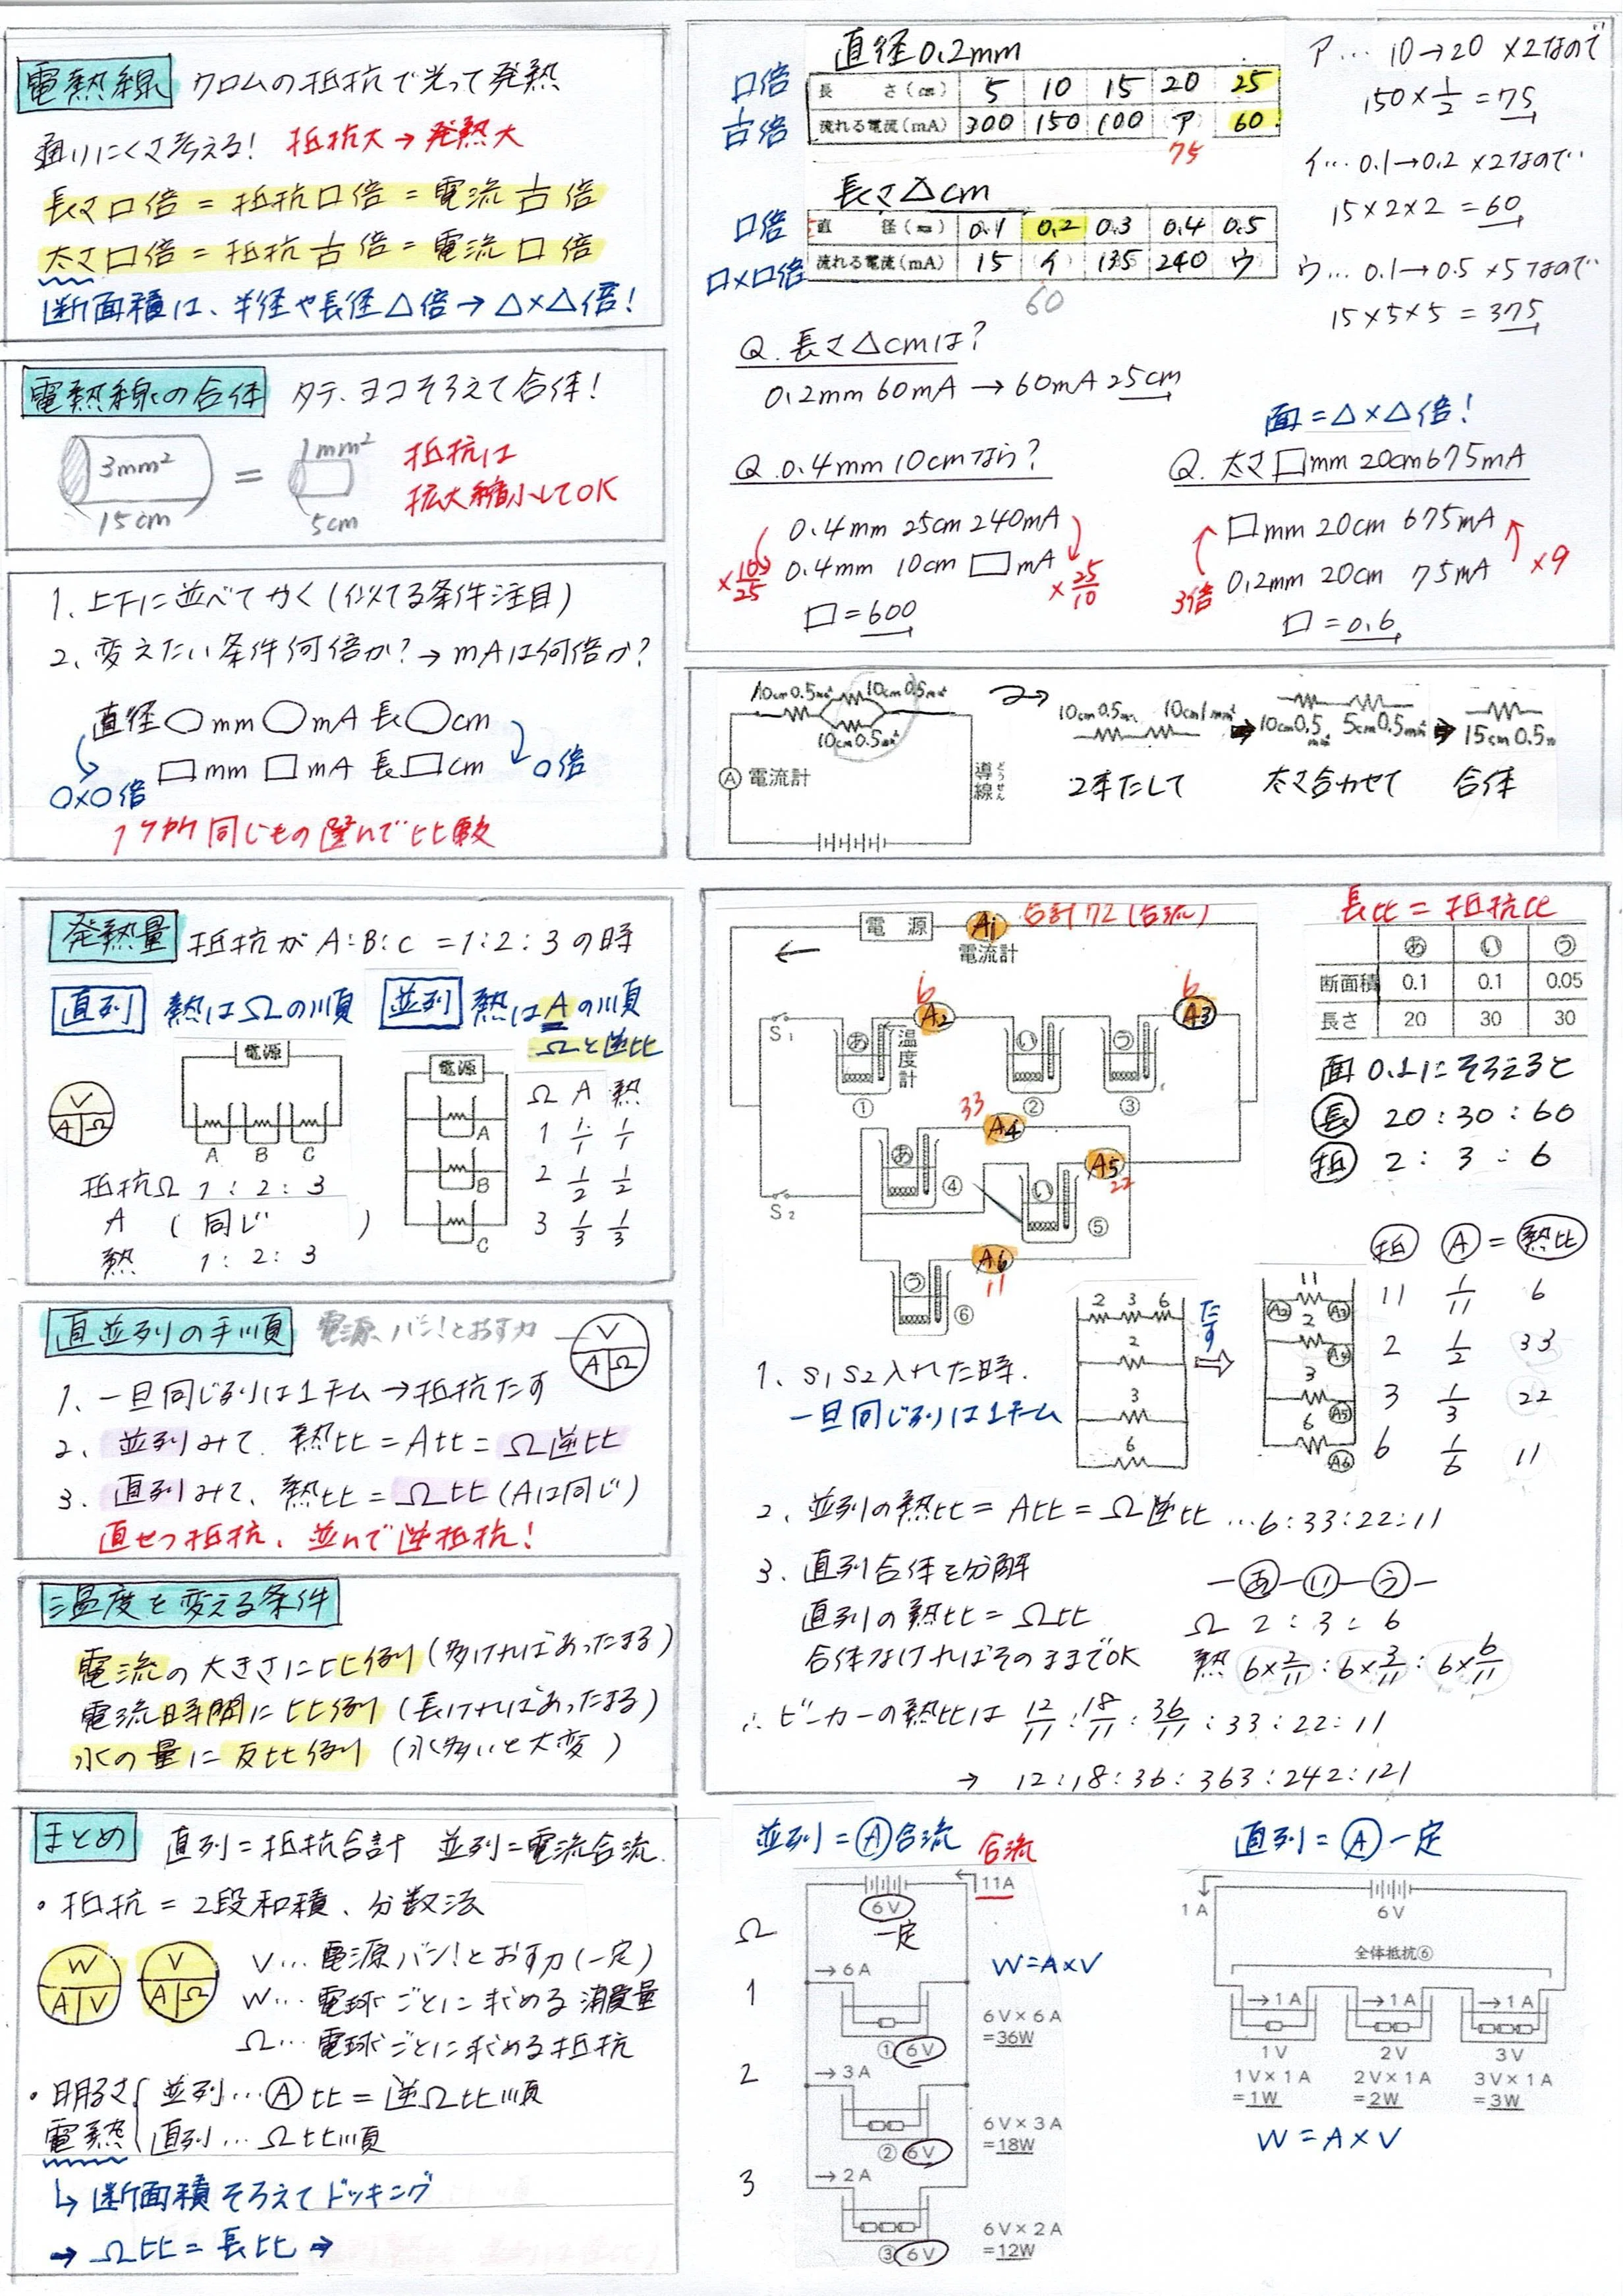 電熱線 クロムの抵抗で光って発熱
通りにくさ考える! 抵抗大→発熱大
長さ□倍=抵抗□倍=電流 1/□ 倍
太さ□倍=抵抗 1/□ 倍=電流□倍
断面積は、半径や長径△倍→△×△倍!
電熱線の合体 タテ、ヨコそろえて合体!
3mm² = 1mm²
15cm 5cm
抵抗は
拡大縮小してOK
1、上下に並べてかく(似てる条件注目)
2、変えたい条件何倍か?→mAは何倍か?
直径○mm○mA長○cm
□mm□mA長□cm
○×○倍 ○倍
1つかく同じもの選んで比較
直径0.2mm
□倍 長さ(cm) 5 10 15 20 25
1/□倍 流れる電流(mA) 300 150 100 ア 60
75
長さ△cm
□倍 直径(mm) 0.1 0.2 0.3 0.4 0.5
□×□倍 流れる電流(mA) 15 イ 135 240 ウ
60
ア…10→20 ×2なので
150×1/2=75
イ…0.1→0.2 ×2なので
15×2×2=60
ウ…0.1→0.5 ×5なので
15×5×5=375
Q.長さ△cmは?
0.2mm 60mA→60mA 25cm
Q.0.4mm 10cmなら?
0.4mm 25cm 240mA
0.4mm 10cm □mA
×10/25 ×25/10
□=600
面=△×△倍!
Q.太さ□mm 20cm 675mA
□mm 20cm 675mA
0.2mm 20cm 75mA
3倍 ×9
□=0.6
10cm0.5mm² 10cm0.5mm²
10cm0.5mm²
A 電流計
導線
どうせん
10cm0.5mm² 10cm1mm²
10cm0.5mm² 5cm0.5mm²
15cm0.5m
2本たして 太さ合わせて 合体
発熱量 抵抗がA:B:C=1:2:3の時
直列 熱はΩの順
並列 熱はAの順
Ωと逆比
V
A Ω
電源
A B C
抵抗Ω 1:2:3
A (同じ)
熱 1:2:3
電源
A
B
C
Ω A 熱
1 1/1 1/1
2 1/2 1/2
3 1/3 1/3
直並列の手順 電源、バン!とおす力
V
A Ω
1、一旦同じ列は1チーム→抵抗たす
2、並列みて、熱比=A比=Ω逆比
3、直列みて、熱比=Ω比(Aは同じ)
直せつ抵抗、並んで逆抵抗!
温度を変える条件
電流の大きさに比例(多ければあったまる)
電流時間に比例(長ければあったまる)
水の量に反比例(水多いと大変)
電源 A1 合計72(合流)
電流計
S1 あ 温度計 A2 6 い う A3 6
① ② ③
33 A4
あ ④ A5 22
S2 い ⑤
A6 11
う ⑥
長比=抵抗比
あ い う
断面積 0.1 0.1 0.05
長さ 20 30 30
面0.1にそろえると
長 20:30:60
抵 2:3:6
1、S1S2入れた時.
一旦同じ列は1チーム
2 3 6
2
3
6
たす
11
A2 A3
2
A4
3
A5
6
A6
抵 A = 熱比
11 1/11 6
2 1/2 33
3 1/3 22
6 1/6 11
2、並列の熱比=A比=Ω逆比…6:33:22:11
3、直列合体を分解
直列の熱比=Ω比
合体なければそのままでOK
あ い う
Ω 2:3:6
熱 6×2/11:6×3/11:6×6/11
∴ビーカーの熱比は 12/11:18/11:36/11:33:22:11
→ 12:18:36:363:242:121
まとめ 直列=抵抗合計 並列=電流合流.
・抵抗=2段和積、分数法
W
A V
V
A Ω
V…電源バン!とおす力(一定)
W…電球ごとに求める消費量
Ω…電球ごとに求める抵抗
・明るさ 並列…A比=逆Ω比順
電熱 直列…Ω比順
↳断面積そろえてドッキング
→Ω比=長比→
並列=A合流 合流
11A
6V
一定
Ω
W=A×V
1 →6A
①6V
6V×6A
=36W
2 →3A
②6V
6V×3A
=18W
3 →2A
③6V
6V×2A
=12W
直列=A一定
1A
6V
全体抵抗⑥
→1A →1A →1A
1V 2V 3V
1V×1A 2V×1A 3V×1A
=1W =2W =3W
W=A×V